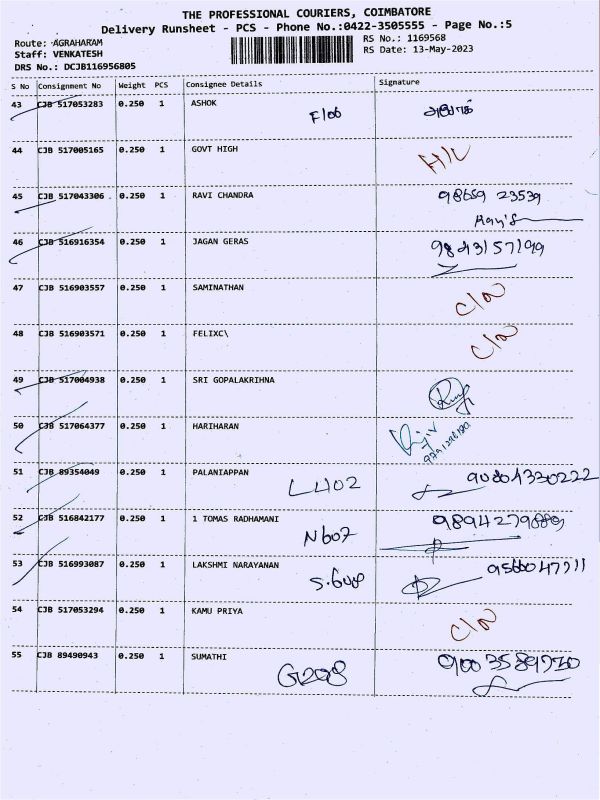 THE PROFESSIONAL COURIERS, COIMBATORE
Delivery Runsheet - PCS - Phone No.:0422-3505555 - Page No.:5
Route: AGRAHARAM
Staff: VENKATESH
DRS No.: DCJB116956805
RS No.: 1169568
RS Date: 13-May-2023
S No Consignment No Weight PCS Consignee Details Signature
43 CJB 517053283 0.250 1 ASHOK F106
44 CJB 517005165 0.250 1 GOVT HIGH
45 CJB 517043306 0.250 1 RAVI CHANDRA 98659 23539
46 CJB 516916354 0.250 1 JAGAN GERAS 9843157199
47 CJB 516903557 0.250 1 SAMINATHAN
48 CJB 516903571 0.250 1 FELIXC\
49 CJB 517004938 0.250 1 SRI GOPALAKRIHNA
50 CJB 517064377 0.250 1 HARIHARAN
51 CJB 89354049 0.250 1 PALANIAPPAN L402
52 CJB 516842177 0.250 1 1 TOMAS RADHAMANI N607
53 CJB 516993087 0.250 1 LAKSHMI NARAYANAN
54 CJB 517053294 0.250 1 KAMU PRIYA
55 CJB 89490943 0.250 1 SUMATHI G298